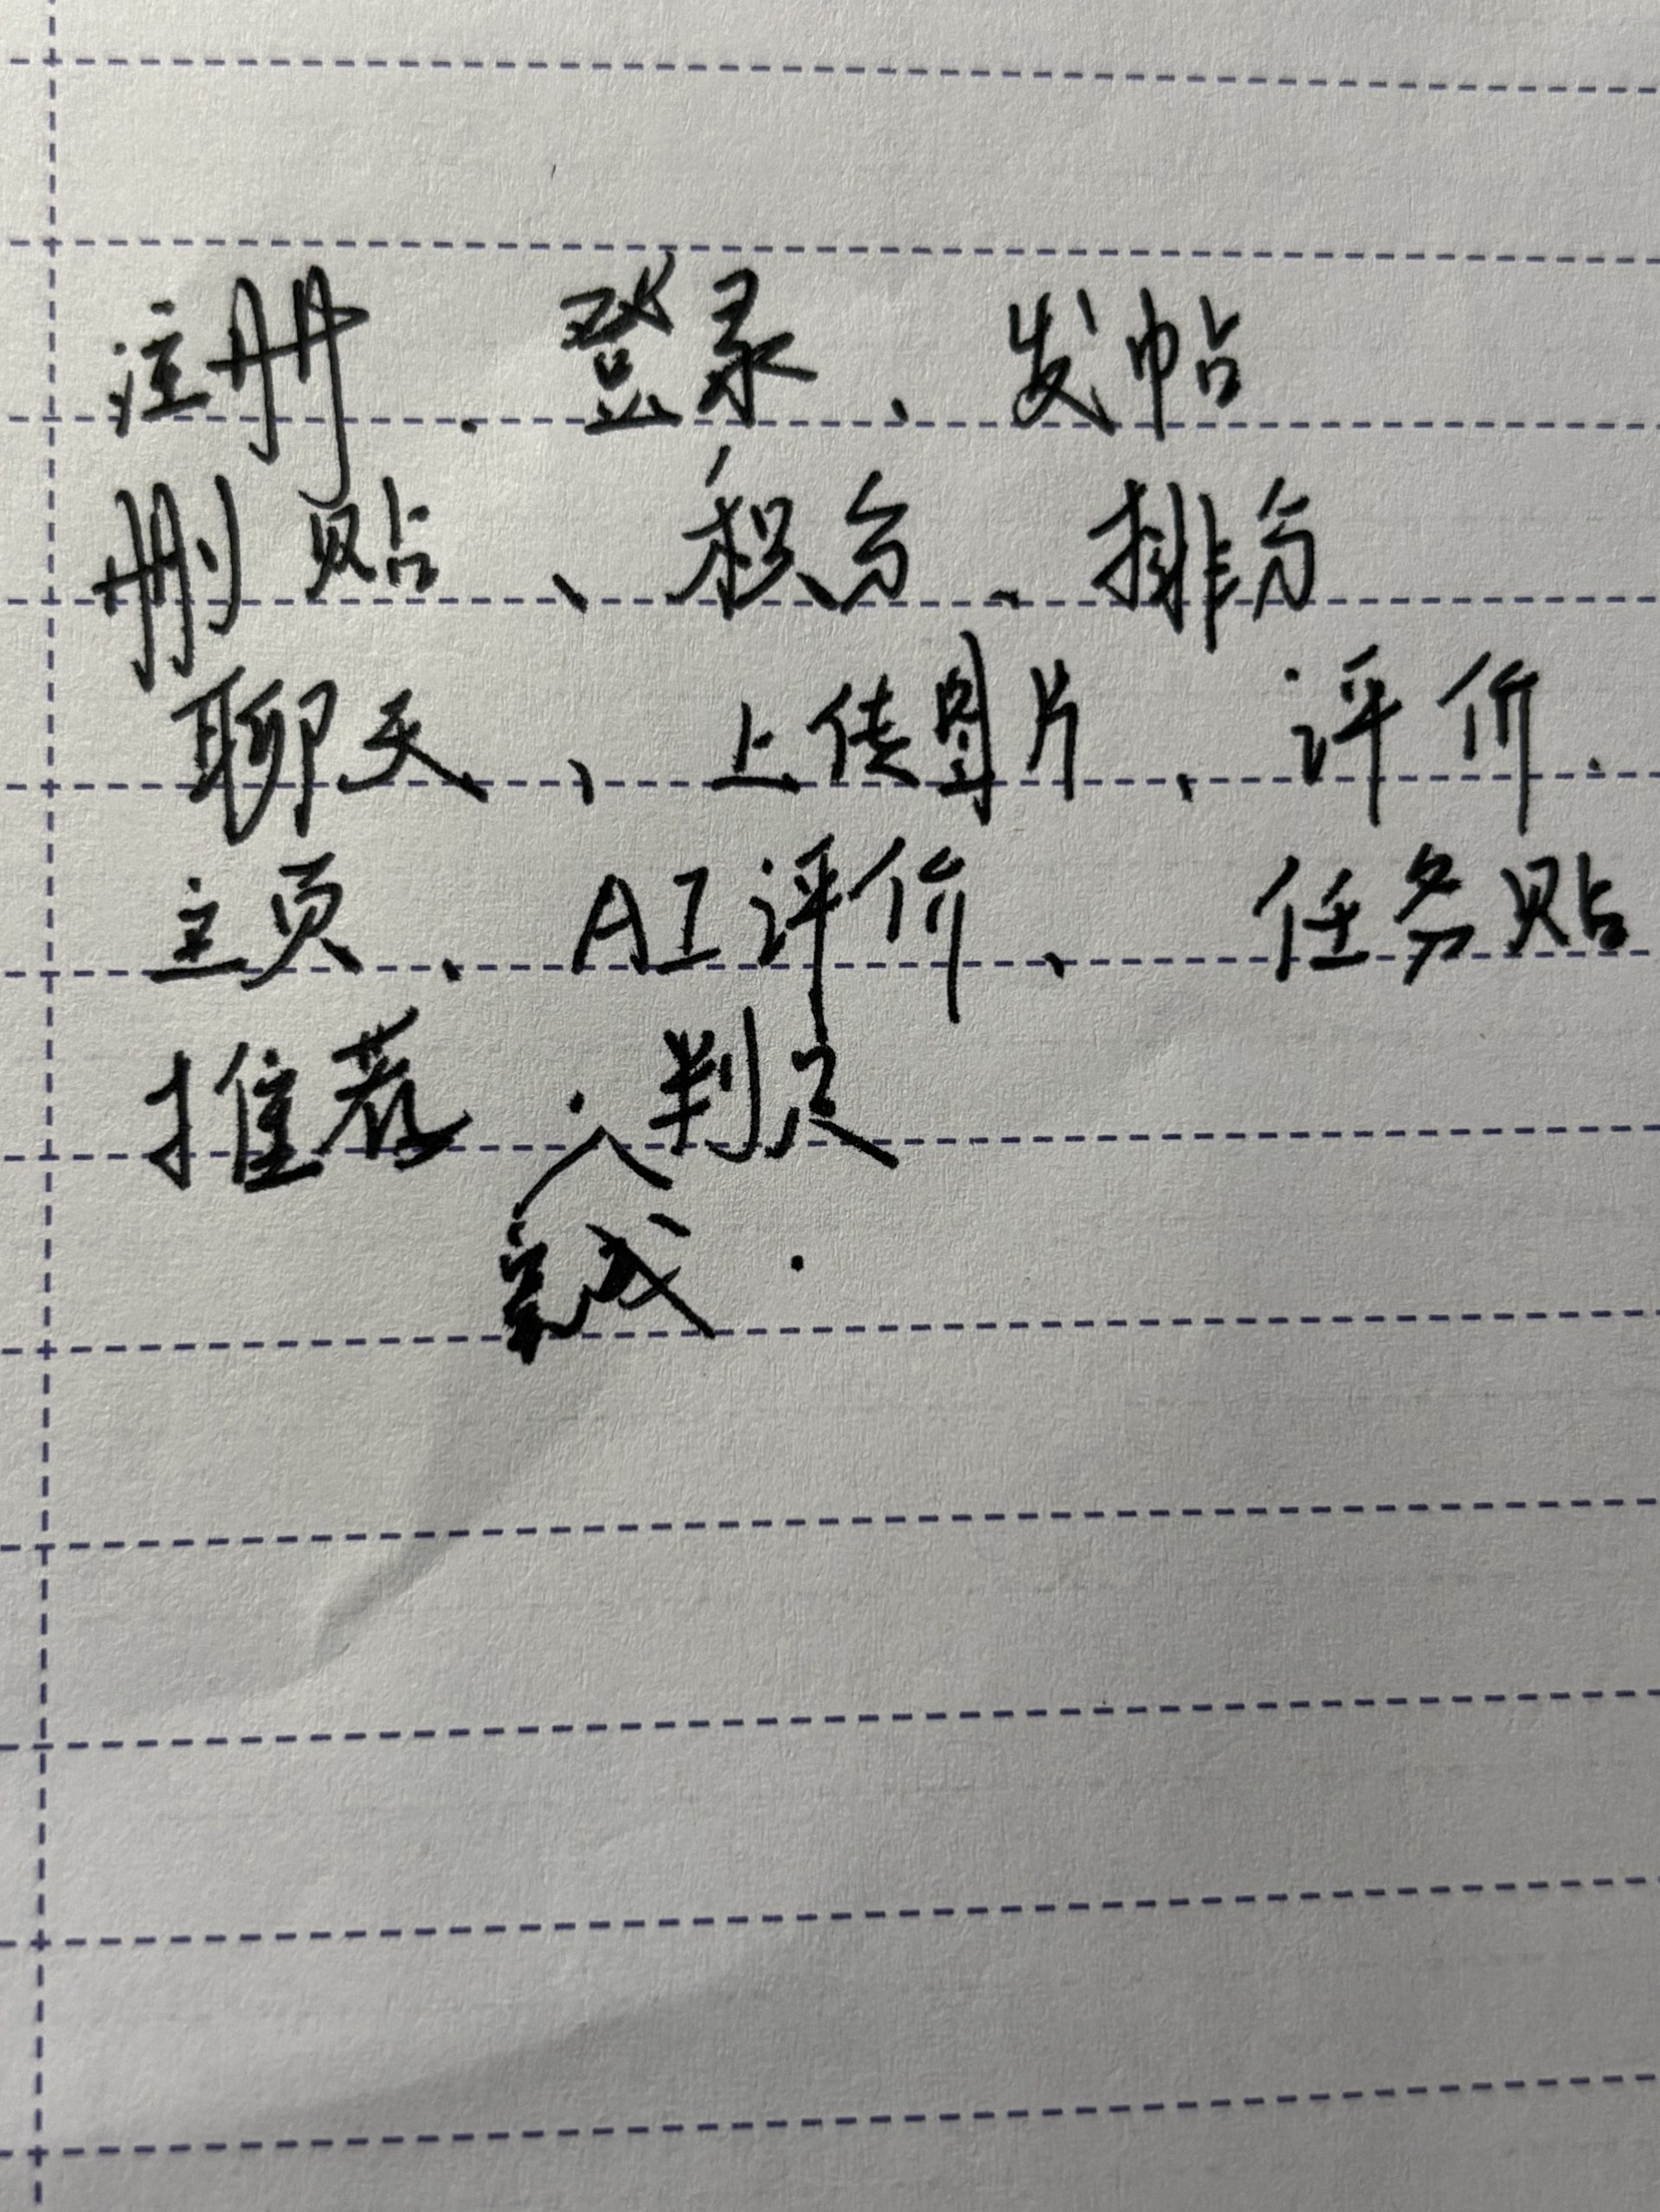 注册、登录、发帖
删贴、积分、排分
聊天、上传图片、评价.
主页、AI评价、任务贴
推荐.判定
完成.